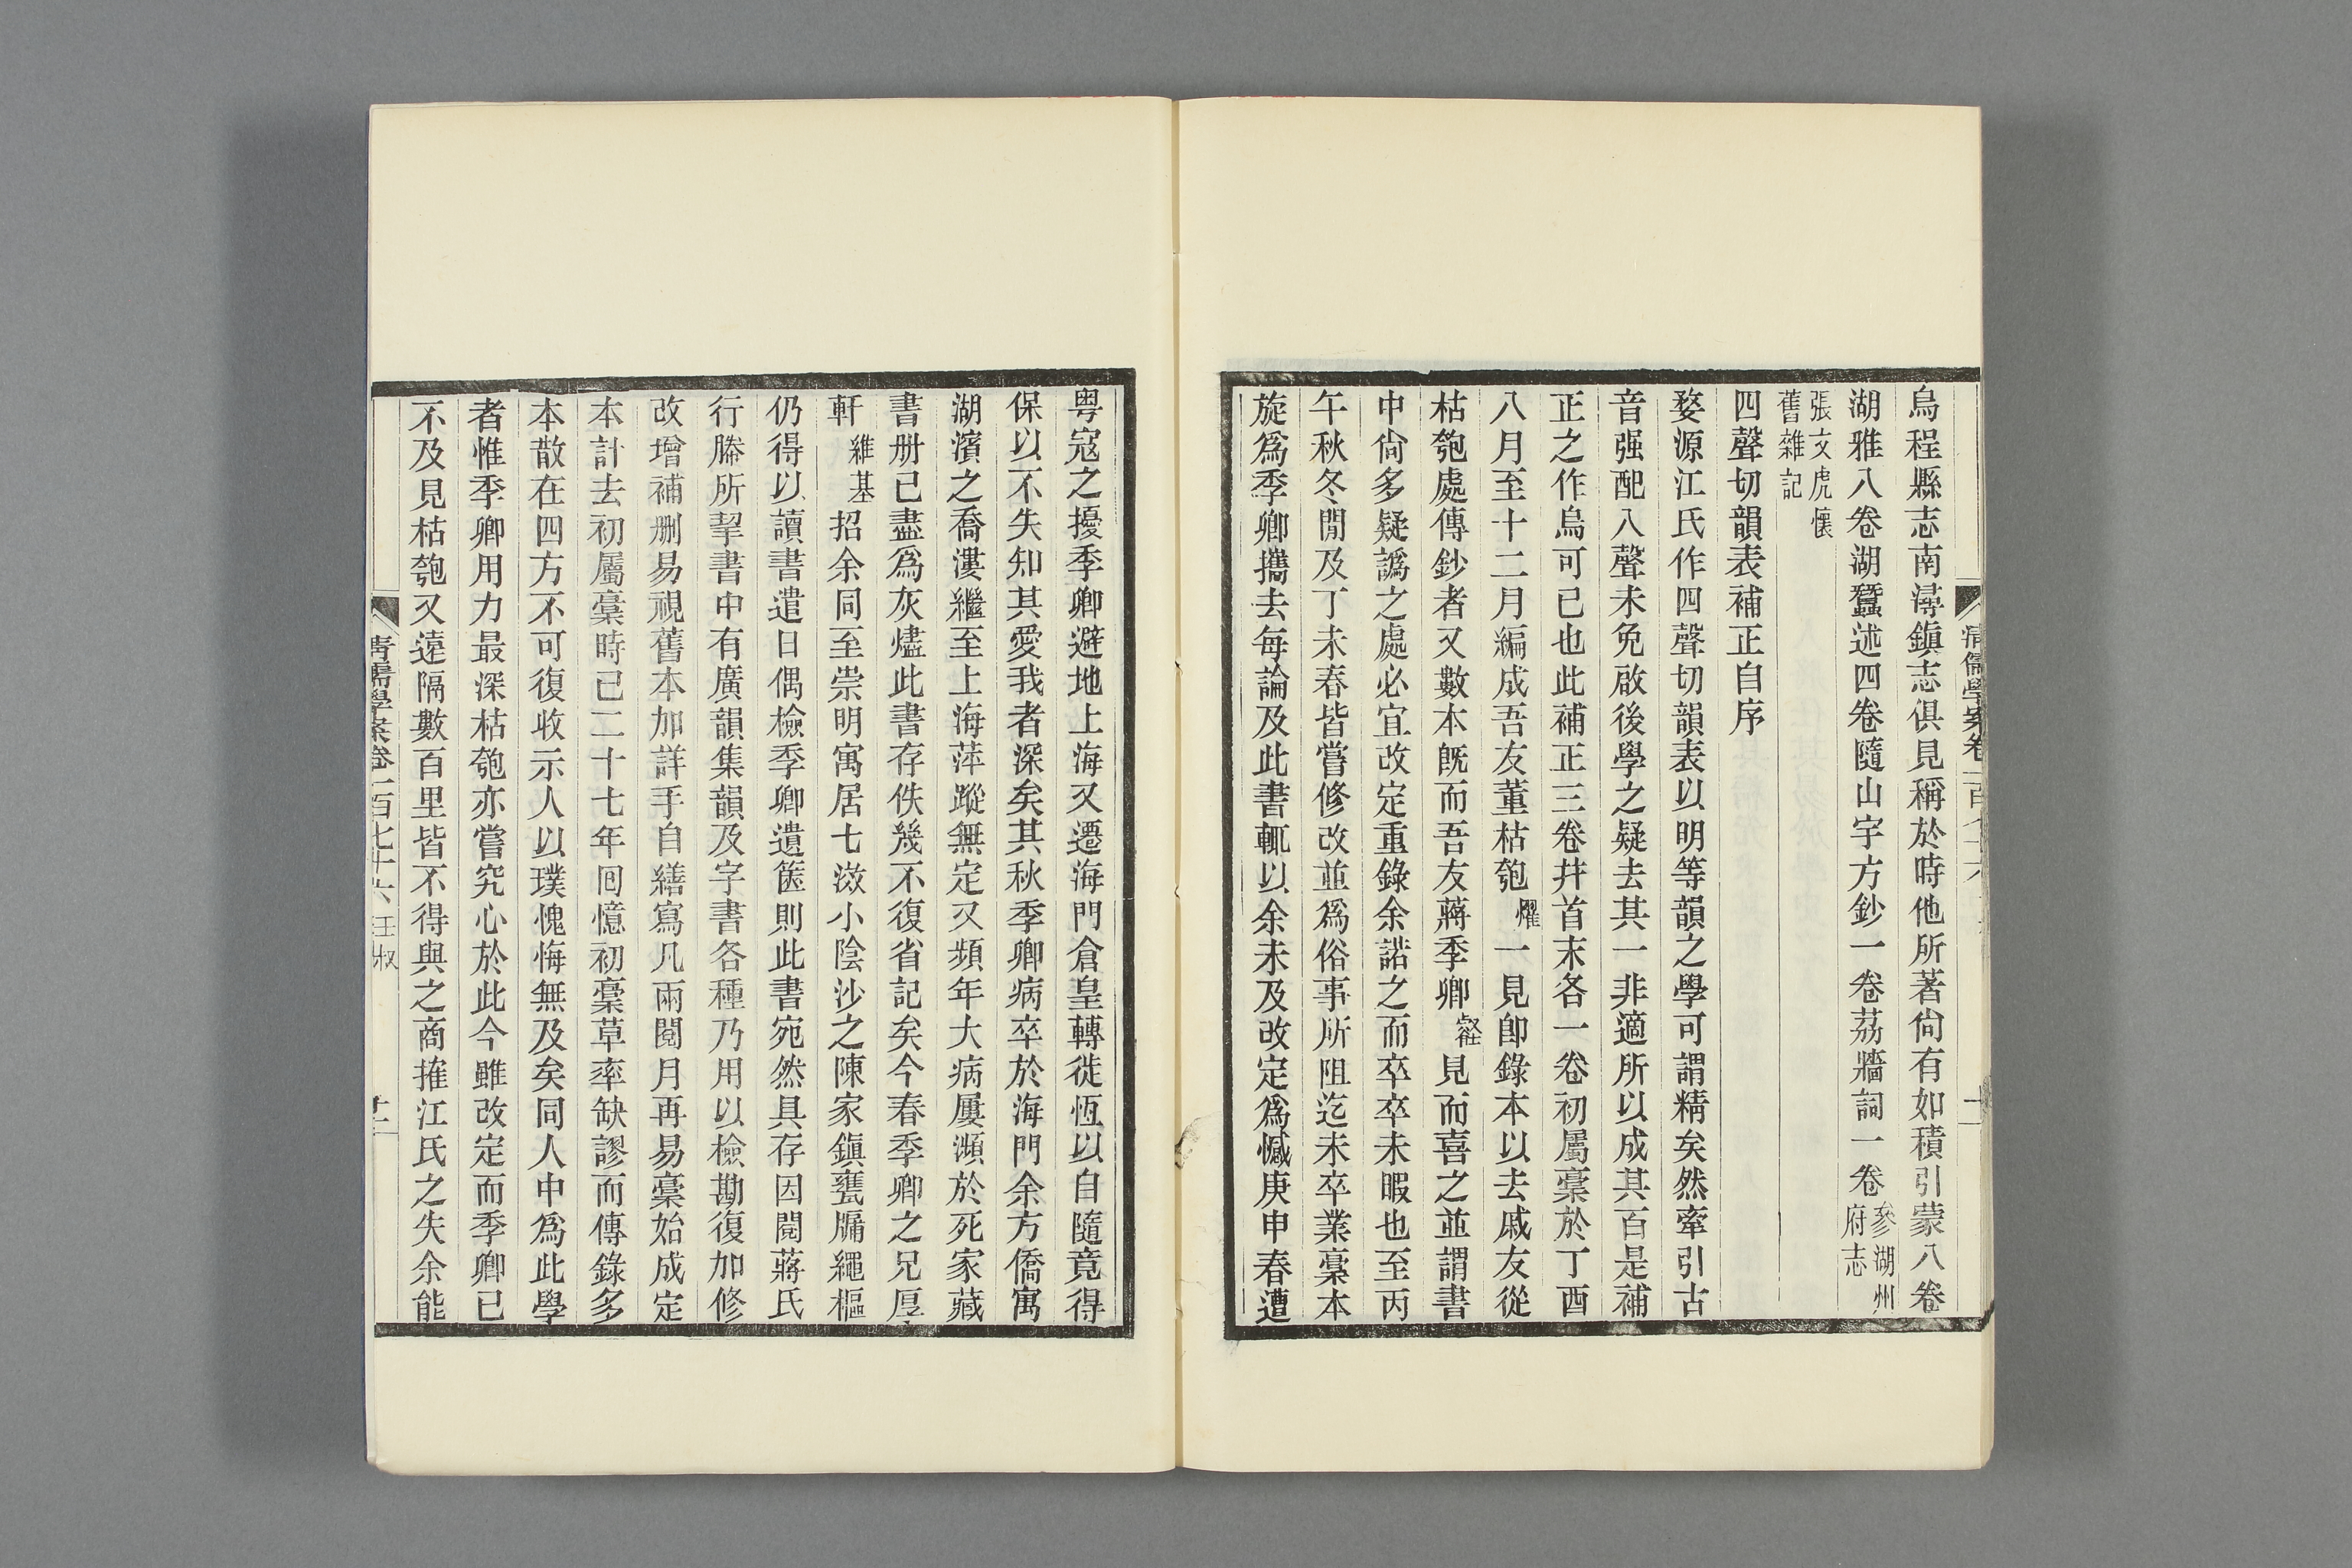 烏程縣志南潯鎭志俱見稱於時他所著尙有如積引蒙八卷
湖雅八卷湖蠶述四卷隨山宇方鈔一卷荔牆詞一卷參湖州府志
張文虎懷舊雜記
四聲切韻表補正自序
婺源江氏作四聲切韻表以明等韻之學可謂精矣然牽引古
音强配入聲未免啟後學之疑去其一非適所以成其百是補
正之作烏可已也此補正三卷幷首末各一卷初屬稾於丁酉
八月至十二月編成吾友董枯匏燿一見卽錄本以去戚友從
枯匏處傳鈔者又數本旣而吾友蔣季卿維見而喜之並謂書
中尙多疑譌之處必宜改定重錄余諾之而卒卒未暇也至丙
午秋冬閒及丁未春皆嘗修改並爲俗事所阻迄未卒業稾本
旋爲季卿攜去每論及此書輒以余未及改定爲憾庚申春遭
粤寇之擾季卿避地上海又遷海門倉皇轉徙恆以自隨竟得
保以不失知其愛我者深矣其秋季卿病卒於海門余方僑寓
湖濱之喬漊繼至上海萍蹤無定又頻年大病屢瀕於死家藏
書册已盡爲灰燼此書存佚幾不復省記矣今春季卿之兄厚
軒維基招余同至崇明寓居七滧小陰沙之陳家鎭甕牖繩樞
仍得以讀書遣日偶檢季卿遺篋則此書宛然具存因閱蔣氏
行縢所挈書中有廣韻集韻及字書各種乃用以檢勘復加修
改增補删易視舊本加詳手自繕寫凡兩閱月再易稾始成定
本計去初屬稾時已二十七年回憶初稾草率缺謬而傳錄多
本散在四方不可復收示人以璞愧悔無及矣同人中爲此學
者惟季卿用力最深枯匏亦嘗究心於此今雖改定而季卿已
不及見枯匏又遠隔數百里皆不得與之商搉江氏之失余能
清儒學案卷一百七十六 汪淑
十二